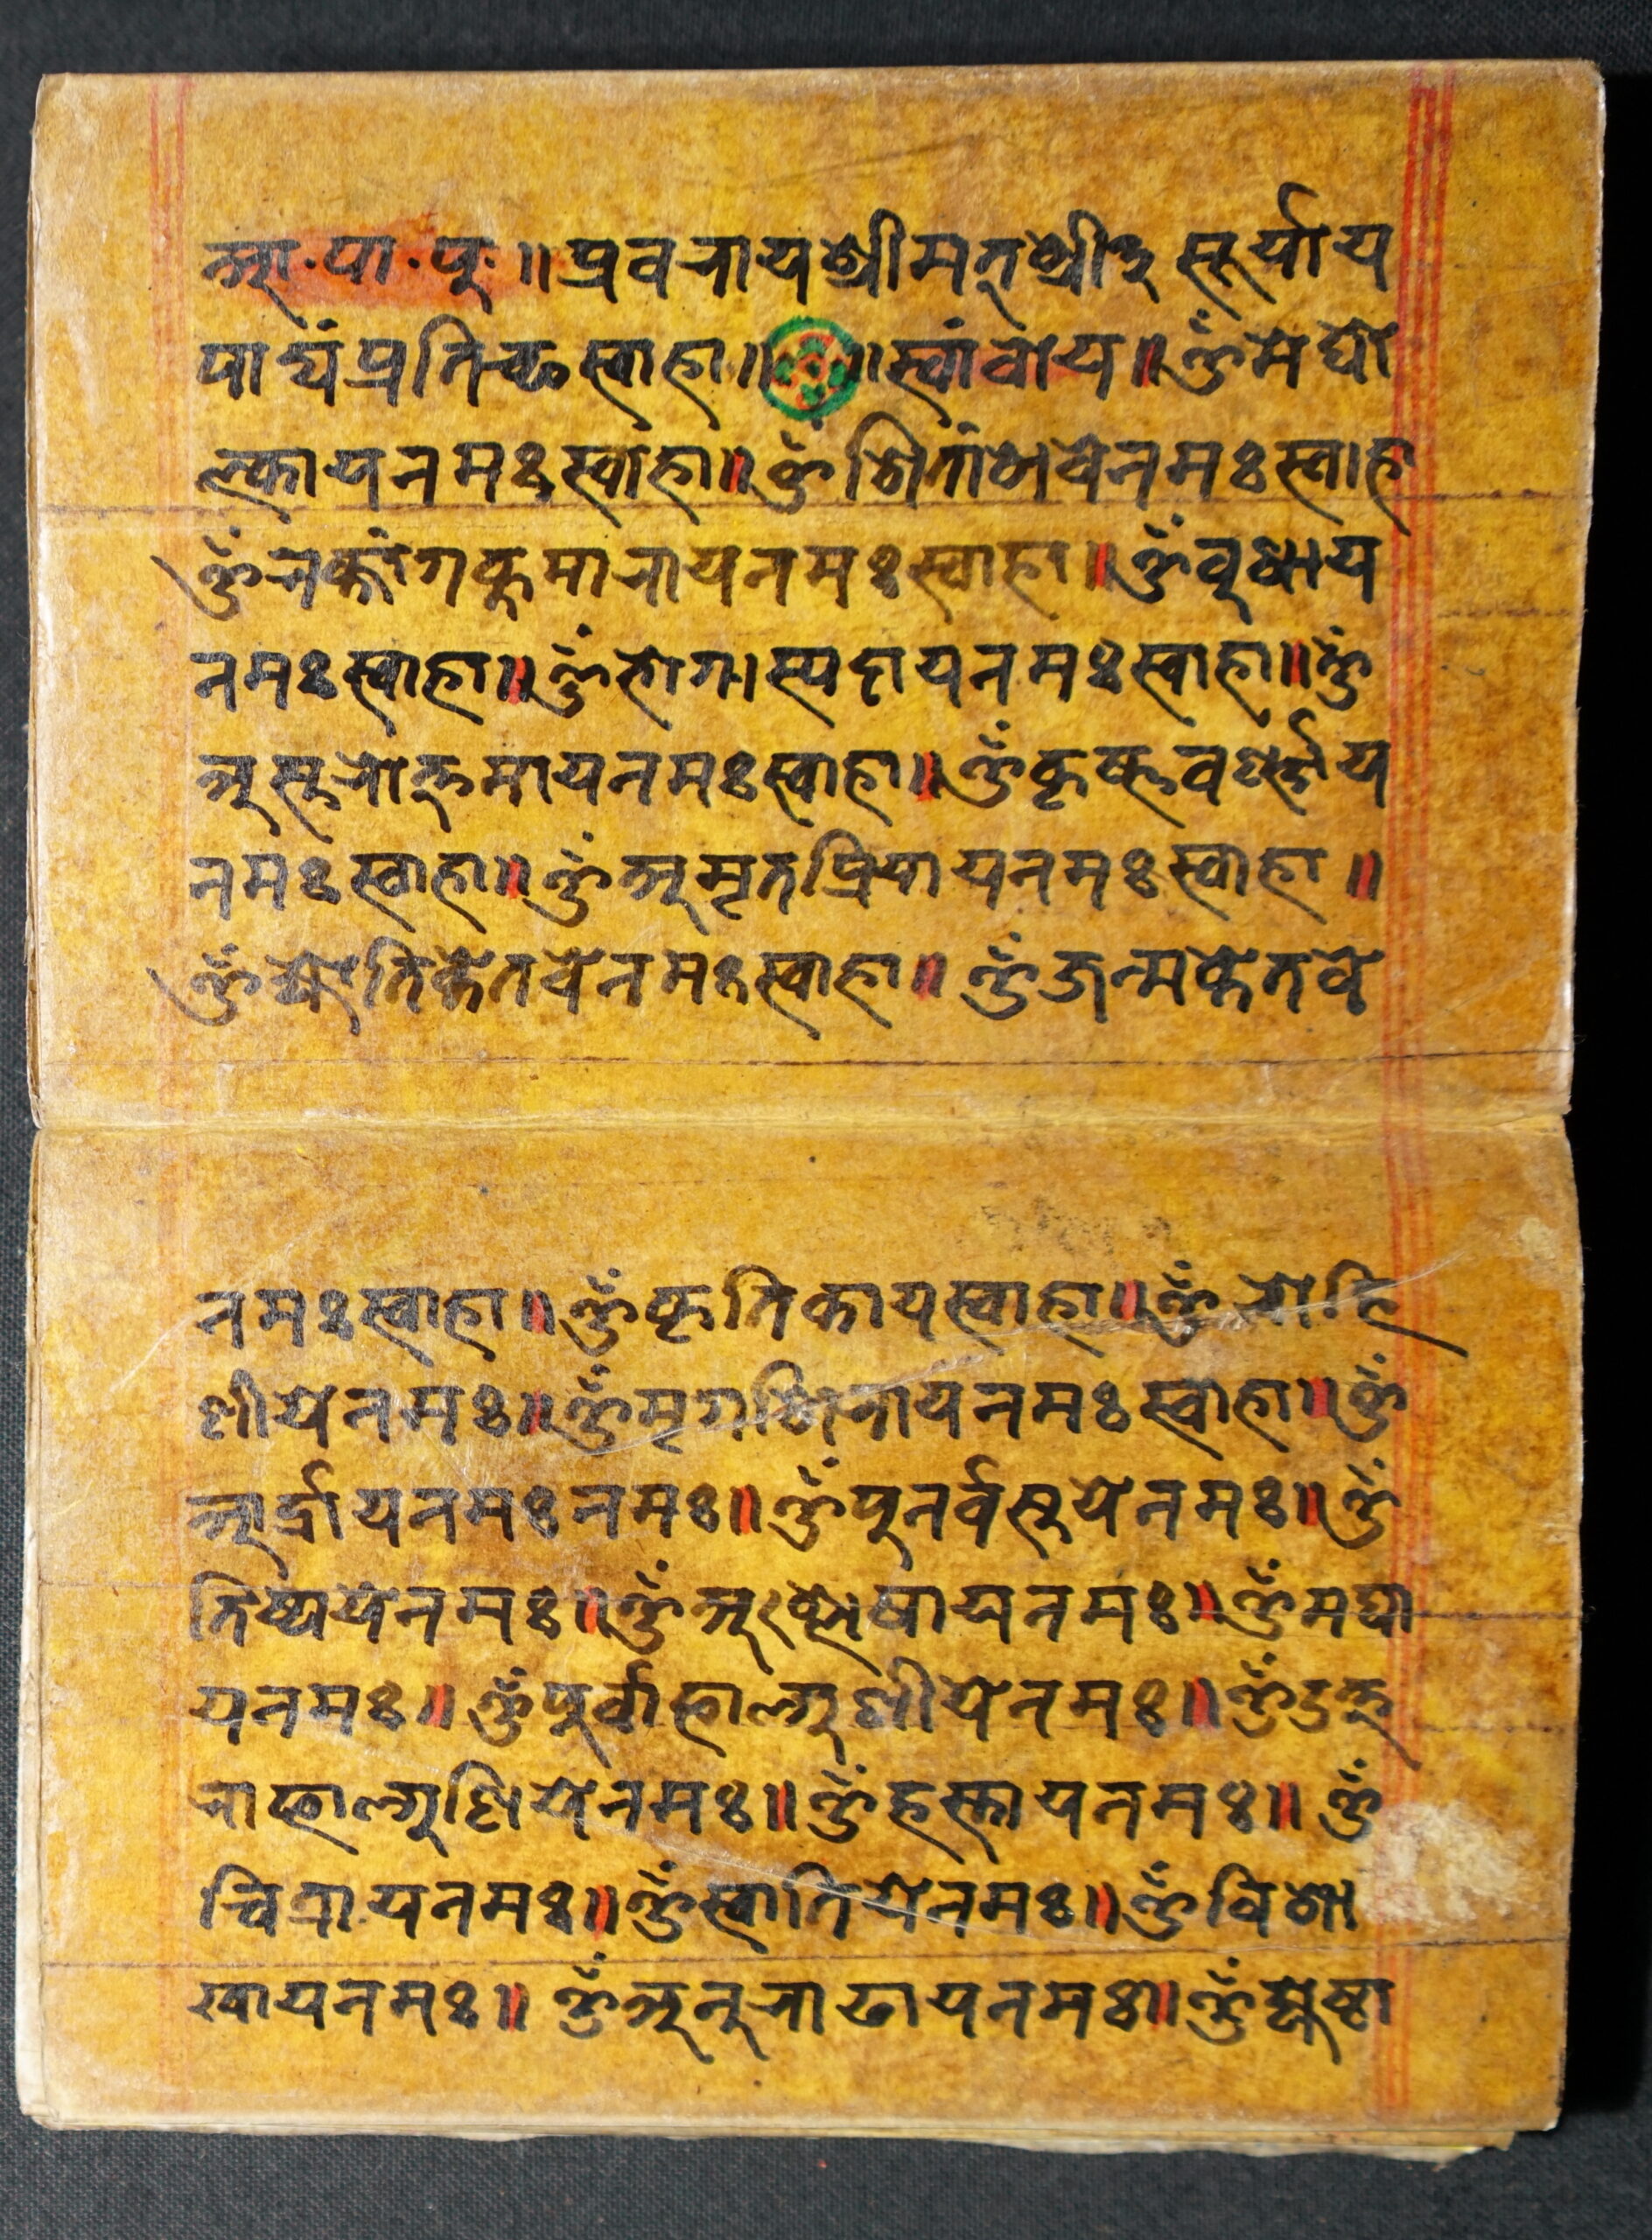 आ·पा·पु·॥प्रवरायश्रीमत्श्री३सूर्याय
पाद्यंप्रतिच्छस्वाहा॥ ॥स्वांवोय॥ॐमेघो
ल्कायनमःस्वाहा॥ॐशितांशवेनमःस्वाहा
ॐरक्तांगकुमारायनमःस्वाहा॥ॐवुधाय
नमःस्वाहा॥ॐभोगास्पदायनमःस्वाहा॥ॐ
असुरोत्तमायनमःस्वाहा॥ॐकृष्णवर्ण्णाय
नमःस्वाहा॥ॐअमृतप्रियायनमःस्वाहा॥
ॐज्योतिकेतवेनमःस्वाहा॥ॐजन्मकेतवे
नमःस्वाहा॥ॐकृतिकायस्वाहा॥ॐरोहि
णीयेनमः॥ॐमृगशिरायनमःस्वाहा॥ॐ
आर्द्रायनमःनमः॥ॐपुनर्वसुयेनमः॥ॐ
तिष्यायेनमः॥ॐअश्लेषायनमः॥ॐमघा
यनमः॥ॐपुर्वाफाल्गुणीयेनमः॥ॐउत्त
राफाल्गुणियेनमः॥ॐहस्तायनमः॥ॐ
चित्रायनमः॥ॐस्वातियेनमः॥ॐविशा
खायनमः॥ॐअनुराढायनमः॥ॐज्येष्ठा